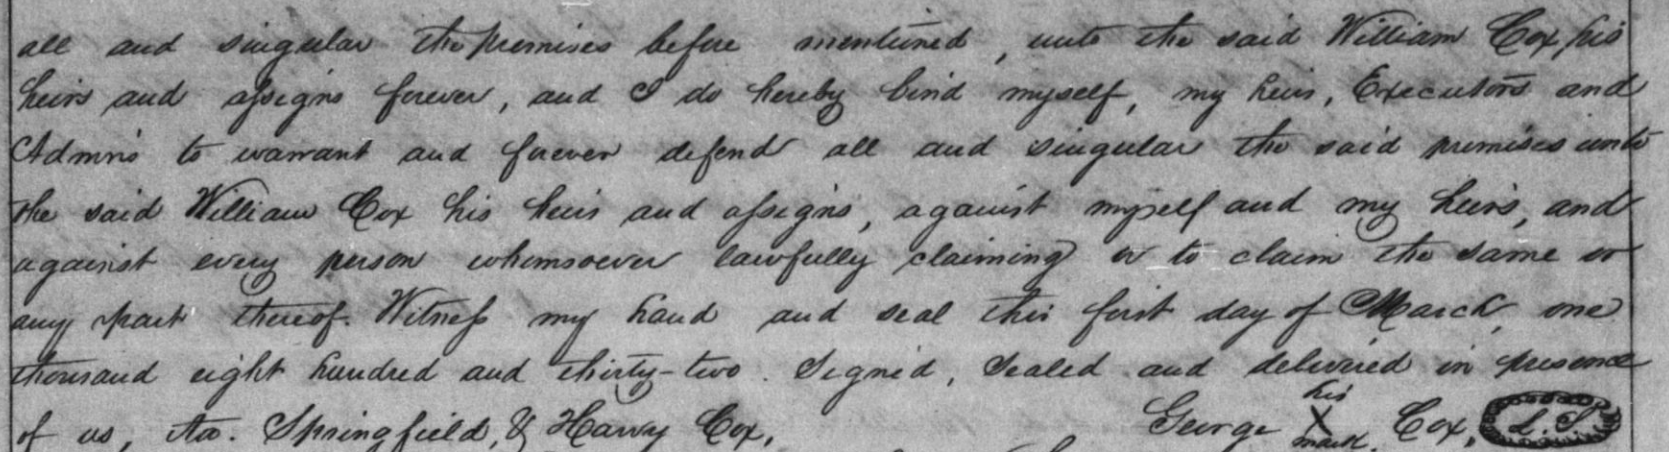 all and singular the premises before mentioned, unto the said William Cox his
heirs and assigns forever, and I do hereby bind myself, my heirs, Executors and
Admrs to warrant and forever defend all and singular the said premises unto
the said William Cox his heirs and assigns, against myself and my heirs, and
against every person whomsoever lawfully claiming or to claim the same or
any part thereof. Witness my hand and seal this first day of March, one
thousand eight hundred and thirty-two. Signed, Sealed and delivered in presence
of us, Springfield, & Harvy Cox, George his X mark. Cox, L.S.